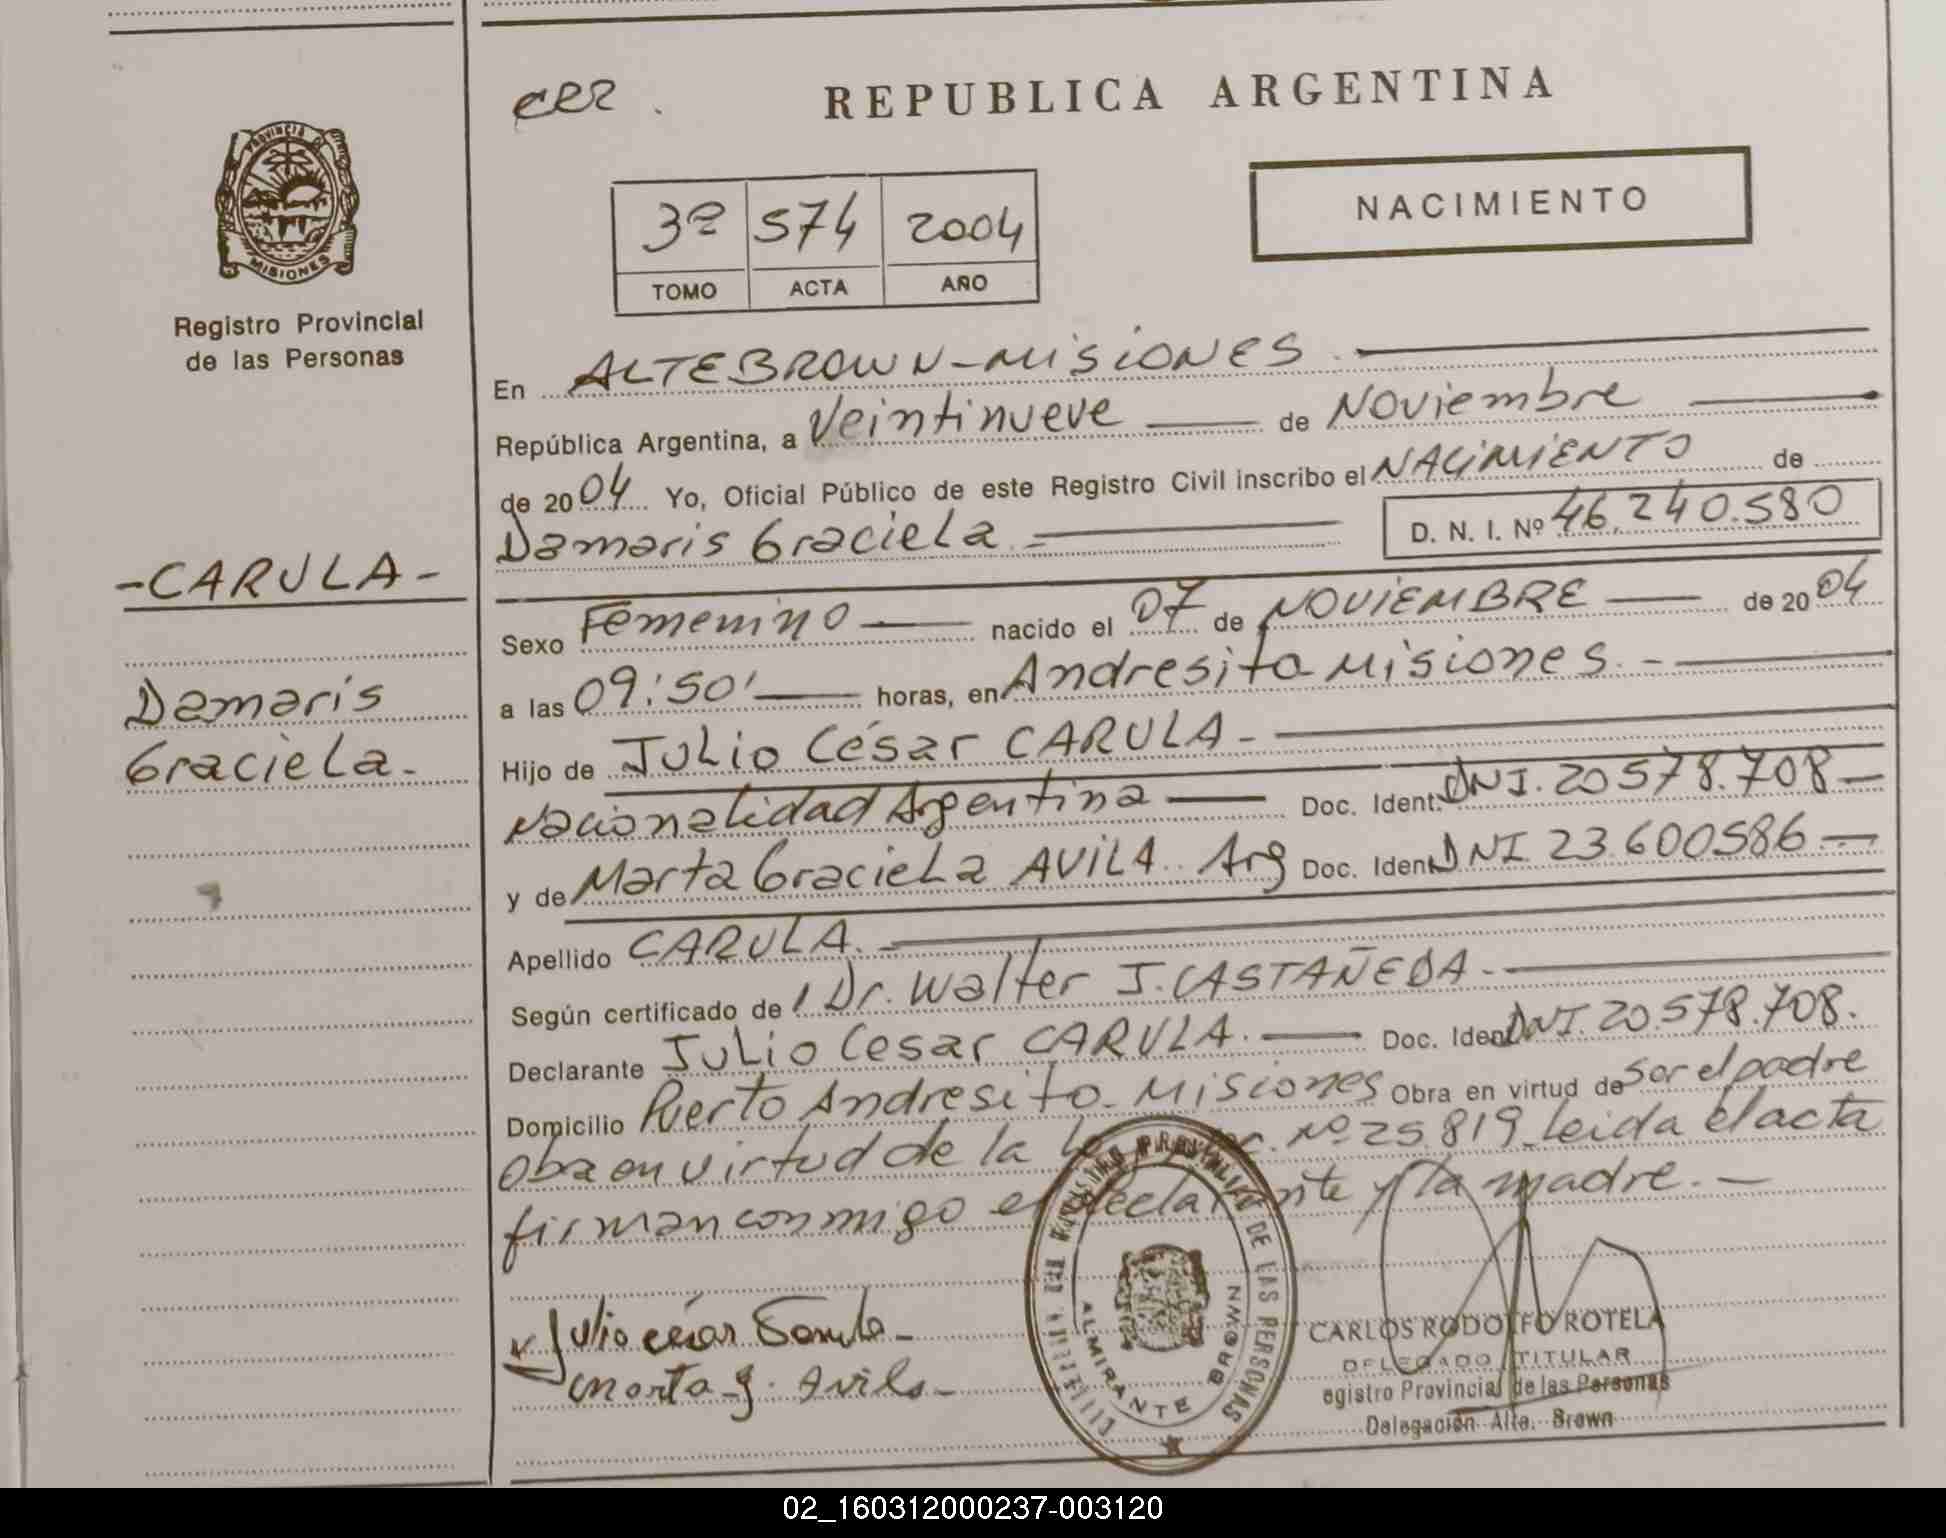 cer.
REPUBLICA ARGENTINA
PROVINCIA DE
MISIONES
Registro Provincial
de las Personas
3º 574 2004
TOMO ACTA AÑO
NACIMIENTO
En ALTEBROWN-MISIONES.
República Argentina, a Veintinueve de Noviembre
de 2004 Yo, Oficial Público de este Registro Civil inscribo el NACIMIENTO de
Damaris Graciela. D. N. I. Nº 46.240.580
-CARULA-
Damaris
Graciela.
Sexo Femenino nacido el 07 de NOVIEMBRE de 2004
a las 09:50' horas, en Andresito Misiones.-
Hijo de Julio César CARULA-
Nacionalidad Argentina Doc. Ident. DNI. 20578.708-
y de Marta Graciela AVILA. Arg Doc. Ident. DNI 23.600586-
Apellido CARULA.-
Según certificado de Dr. Walter J. CASTAÑEDA-
Declarante Julio Cesar CARULA. Doc. Ident. DNI. 20.578.708.
Domicilio Puerto Andresito-Misiones Obra en virtud de Ser el padre
Obra en virtud de la Nº 25819-leida el acta
firman conmigo el declarante y la madre.-
Julio césar Carula-
Marta G. Avila-
REGISTRO PROVINCIAL DE LAS PERSONAS
ALMIRANTE BROWN
CARLOS RODOLFO ROTELA
DELEGADO TITULAR
egistro Provincial de las Personas
Delegación Alte. Brown
02_160312000237-003120